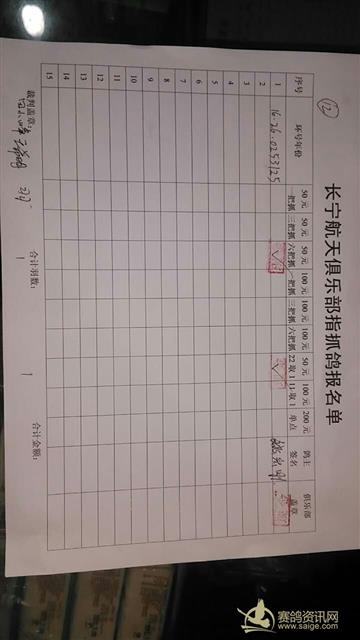 ⑫
长宁航天俱乐部指抓鸽报名单
序号 环号年份 50元一把抓 50元三把抓 50元六把抓 100元一把抓 100元三把抓 100元六把抓 50元22取1 100元11取1 200元单点 鸽主签名 俱乐部盖章
1 16.26.0253125
2
3
4
5
6
7
8
9
10
11
12
13
14
15
裁判盖章: 合计羽数: 1 1 合计金额:
赛鸽资讯网
www.saige.com